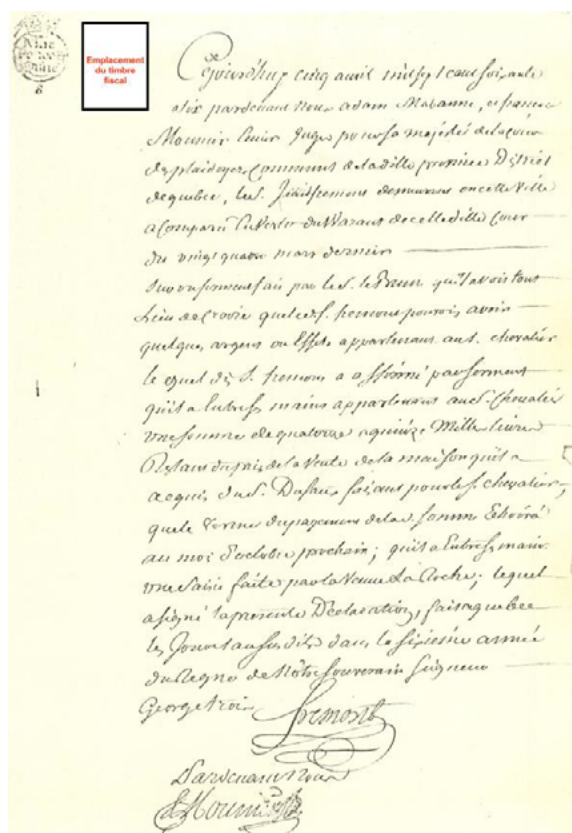 Emplacement
du timbre
fiscal
Cejourd'huy cinq avril mil sept cent soixante
et six pardevant nous adam Mabanne, et francois
Mounier Ecuier Juges pour sa majesté de la cour
des plaidoyers communs de la ditte province District
de quebec, le S. fremont demeurant en cette Ville
a comparu En Vertu du Warant de cette ditte Cour
du vingt quatre mars dernier
Sur ce fait par le S. le Brun qu'il avoit tout
Lieu de Croire que led. S. fremont pouvoit avoir
quelques argens ou Effets appartenans au S. chevalier
le quel dit S. fremont a affirmé par serment
qu'il a Entre ses mains appartenant au S. Chevalier
une somme de quatorze a quinze Mille livres
Restant du prix de la Vente de la maison qu'il a
acquis du S. faisant pour led. S. chevalier,
que le terme du payement de lad. somme Echoira
au mois d'octobre prochain; qu'il a Entre ses mains
une Saisie faite par la Veuve La Roche; lequel
a signé la presente Déclaration, fait a quebec
les Jour et an susdits dans la sixieme année
du Regne de Nôtre Souverain Seigneur
George trois fremont
Pardevant Nous
Mounier